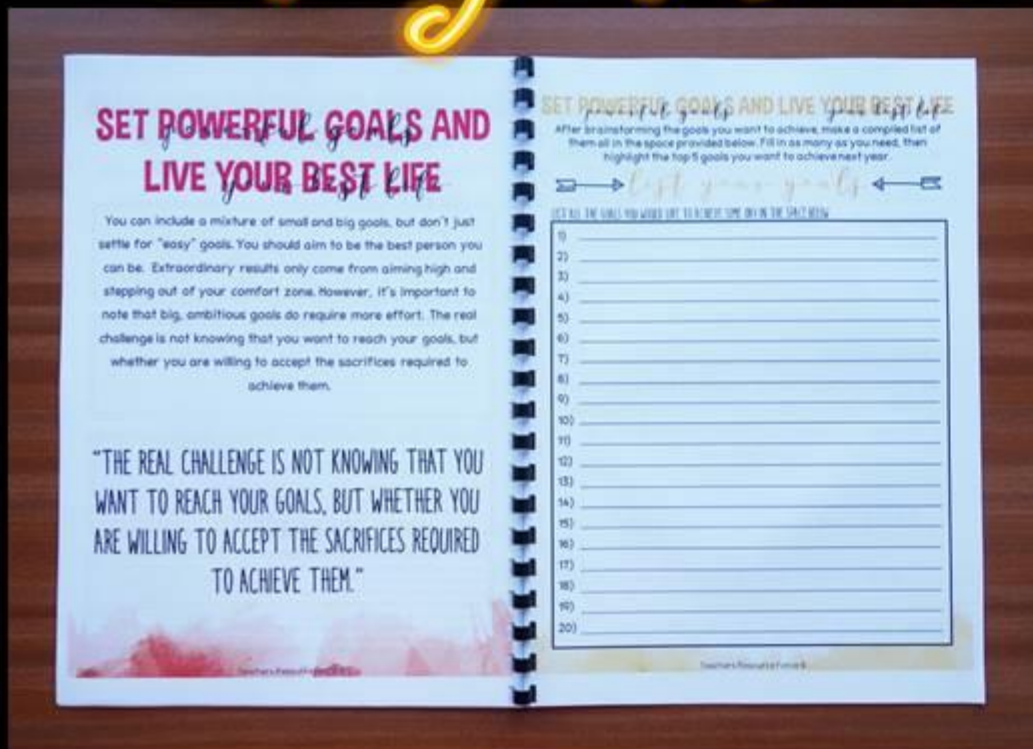 SET POWERFUL GOALS AND
powerful goals
LIVE YOUR BEST LIFE
your best life
You can include a mixture of small and big goals, but don't just
settle for "easy" goals. You should aim to be the best person you
can be. Extraordinary results only come from aiming high and
stepping out of your comfort zone. However, it's important to
note that big, ambitious goals do require more effort. The real
challenge is not knowing that you want to reach your goals, but
whether you are willing to accept the sacrifices required to
achieve them.
"THE REAL CHALLENGE IS NOT KNOWING THAT YOU
WANT TO REACH YOUR GOALS, BUT WHETHER YOU
ARE WILLING TO ACCEPT THE SACRIFICES REQUIRED
TO ACHIEVE THEM."
SET POWERFUL GOALS AND LIVE YOUR BEST LIFE
powerful goals your best life
After brainstorming the goals you want to achieve, make a compiled list of
them all in the space provided below. Fill in as many as you need, then
highlight the top 5 goals you want to achieve next year.
list your goals
LIST ALL THE GOALS YOU WOULD LIKE TO ACHIEVE SOME DAY IN THE SPACE BELOW
1)
2)
3)
4)
5)
6)
7)
8)
9)
10)
11)
12)
13)
14)
15)
16)
17)
18)
19)
20)